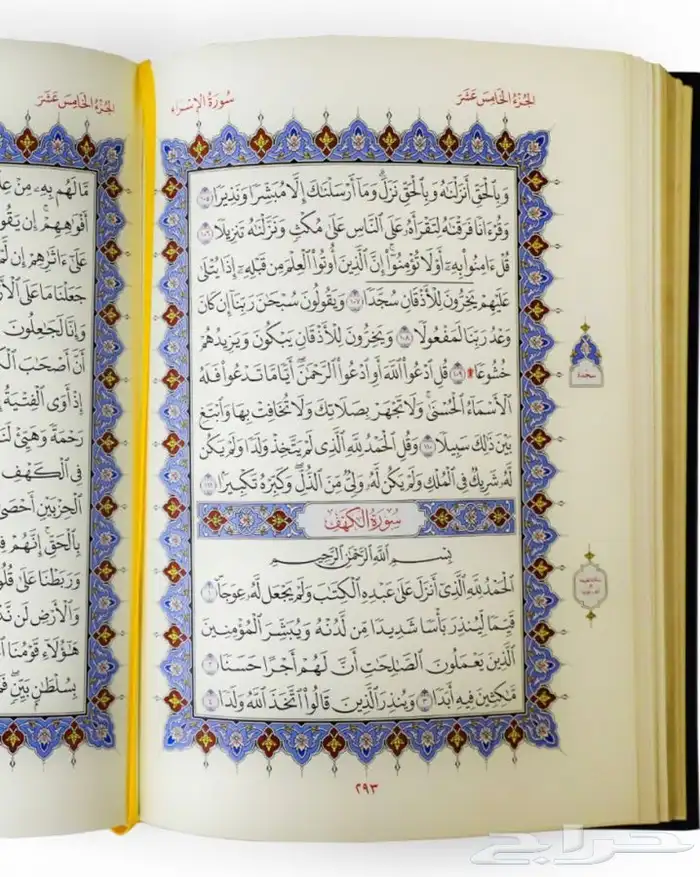 سُورَةُ الإِسْرَاء
الجُزْءُ الخَامِسَ عَشَرَ
وَبِٱلْحَقِّ أَنزَلْنَٰهُ وَبِٱلْحَقِّ نَزَلَ ۗ وَمَآ أَرْسَلْنَٰكَ إِلَّا مُبَشِّرًا وَنَذِيرًا ١٠٥
وَقُرْءَانًا فَرَقْنَٰهُ لِتَقْرَأَهُۥ عَلَى ٱلنَّاسِ عَلَىٰ مُكْثٍ وَنَزَّلْنَٰهُ تَنزِيلًا ١٠٦
قُلْ ءَامِنُوا۟ بِهِۦٓ أَوْ لَا تُؤْمِنُوٓا۟ ۚ إِنَّ ٱلَّذِينَ أُوتُوا۟ ٱلْعِلْمَ مِن قَبْلِهِۦٓ إِذَا يُتْلَىٰ
عَلَيْهِمْ يَخِرُّونَ لِلْأَذْقَانِ سُجَّدًا ١٠٧ وَيَقُولُونَ سُبْحَٰنَ رَبِّنَآ إِن كَانَ
وَعْدُ رَبِّنَا لَمَفْعُولًا ١٠٨ وَيَخِرُّونَ لِلْأَذْقَانِ يَبْكُونَ وَيَزِيدُهُمْ
خُشُوعًا ۩ ١٠٩ قُلِ ٱدْعُوا۟ ٱللَّهَ أَوِ ٱدْعُوا۟ ٱلرَّحْمَٰنَ ۖ أَيًّا مَّا تَدْعُوا۟ فَلَهُ
ٱلْأَسْمَآءُ ٱلْحُسْنَىٰ ۚ وَلَا تَجْهَرْ بِصَلَاتِكَ وَلَا تُخَافِتْ بِهَا وَٱبْتَغِ
بَيْنَ ذَٰلِكَ سَبِيلًا ١١٠ وَقُلِ ٱلْحَمْدُ لِلَّهِ ٱلَّذِى لَمْ يَتَّخِذْ وَلَدًا وَلَمْ يَكُن
لَّهُۥ شَرِيكٌ فِى ٱلْمُلْكِ وَلَمْ يَكُن لَّهُۥ وَلِىٌّ مِّنَ ٱلذُّلِّ ۖ وَكَبِّرْهُ تَكْبِيرًۢا ١١١
سُورَةُ الكَهْفِ
بِسْمِ ٱللَّهِ ٱلرَّحْمَٰنِ ٱلرَّحِيمِ
ٱلْحَمْدُ لِلَّهِ ٱلَّذِىٓ أَنزَلَ عَلَىٰ عَبْدِهِ ٱلْكِتَٰبَ وَلَمْ يَجْعَل لَّهُۥ عِوَجَا ۜ ١
قَيِّمًا لِّيُنذِرَ بَأْسًا شَدِيدًا مِّن لَّدُنْهُ وَيُبَشِّرَ ٱلْمُؤْمِنِينَ
ٱلَّذِينَ يَعْمَلُونَ ٱلصَّٰلِحَٰتِ أَنَّ لَهُمْ أَجْرًا حَسَنًا ٢
مَّٰكِثِينَ فِيهِ أَبَدًا ٣ وَيُنذِرَ ٱلَّذِينَ قَالُوا۟ ٱتَّخَذَ ٱللَّهُ وَلَدًا ٤
٢٩٣
سجدة
الجُزْءُ الخَامِسَ عَشَرَ
مَّا لَهُم بِهِۦ مِنْ
أَفْوَٰهِهِمْ ۚ إِن
عَلَىٰٓ ءَاثَٰرِهِمْ إِن
جَعَلْنَا مَا عَلَى
وَإِنَّا لَجَٰعِلُونَ
أَنَّ أَصْحَٰبَ
إِذْ أَوَى ٱلْفِتْيَةُ
رَحْمَةً وَهَيِّئْ
فِى ٱلْكَهْفِ
ٱلْحِزْبَيْنِ
بِٱلْحَقِّ ۚ إِنَّهُمْ
وَرَبَطْنَا عَلَىٰ
وَٱلْأَرْضِ لَن
هَٰٓؤُلَآءِ قَوْمُنَا
بِسُلْطَٰنٍۭ بَيِّنٍ ۖ
حراج